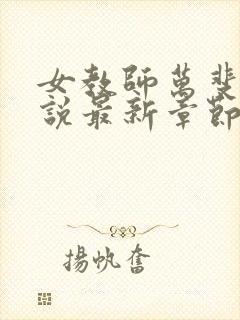 女教師萬斐
說最新章節
揚帆奮